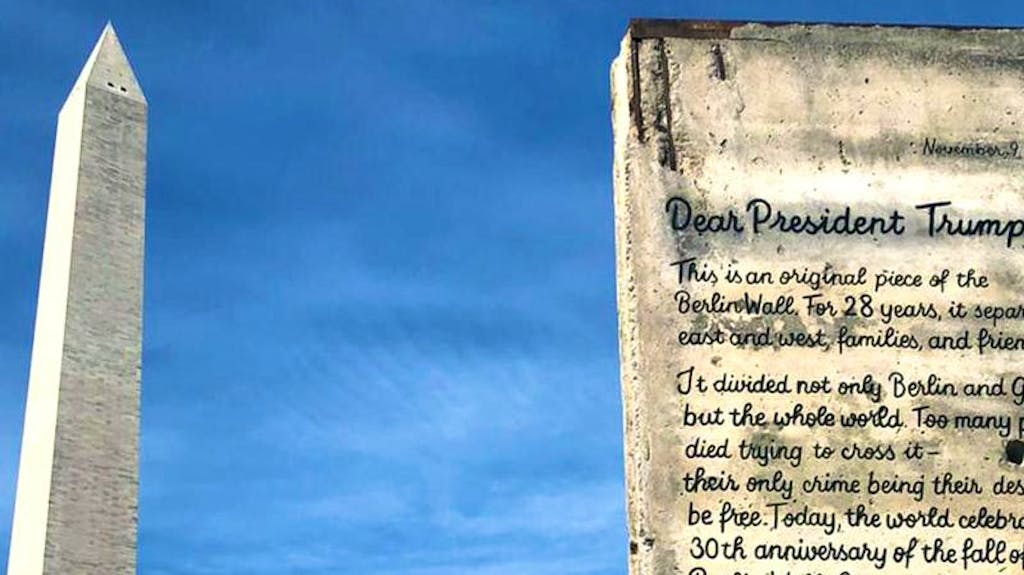 November 9,
Dear President Trump
This is an original piece of the
Berlin Wall. For 28 years, it separ
east and west, families, and frien
It divided not only Berlin and G
but the whole world. Too many p
died trying to cross it –
their only crime being their des
be free. Today, the world celebra
30th anniversary of the fall of